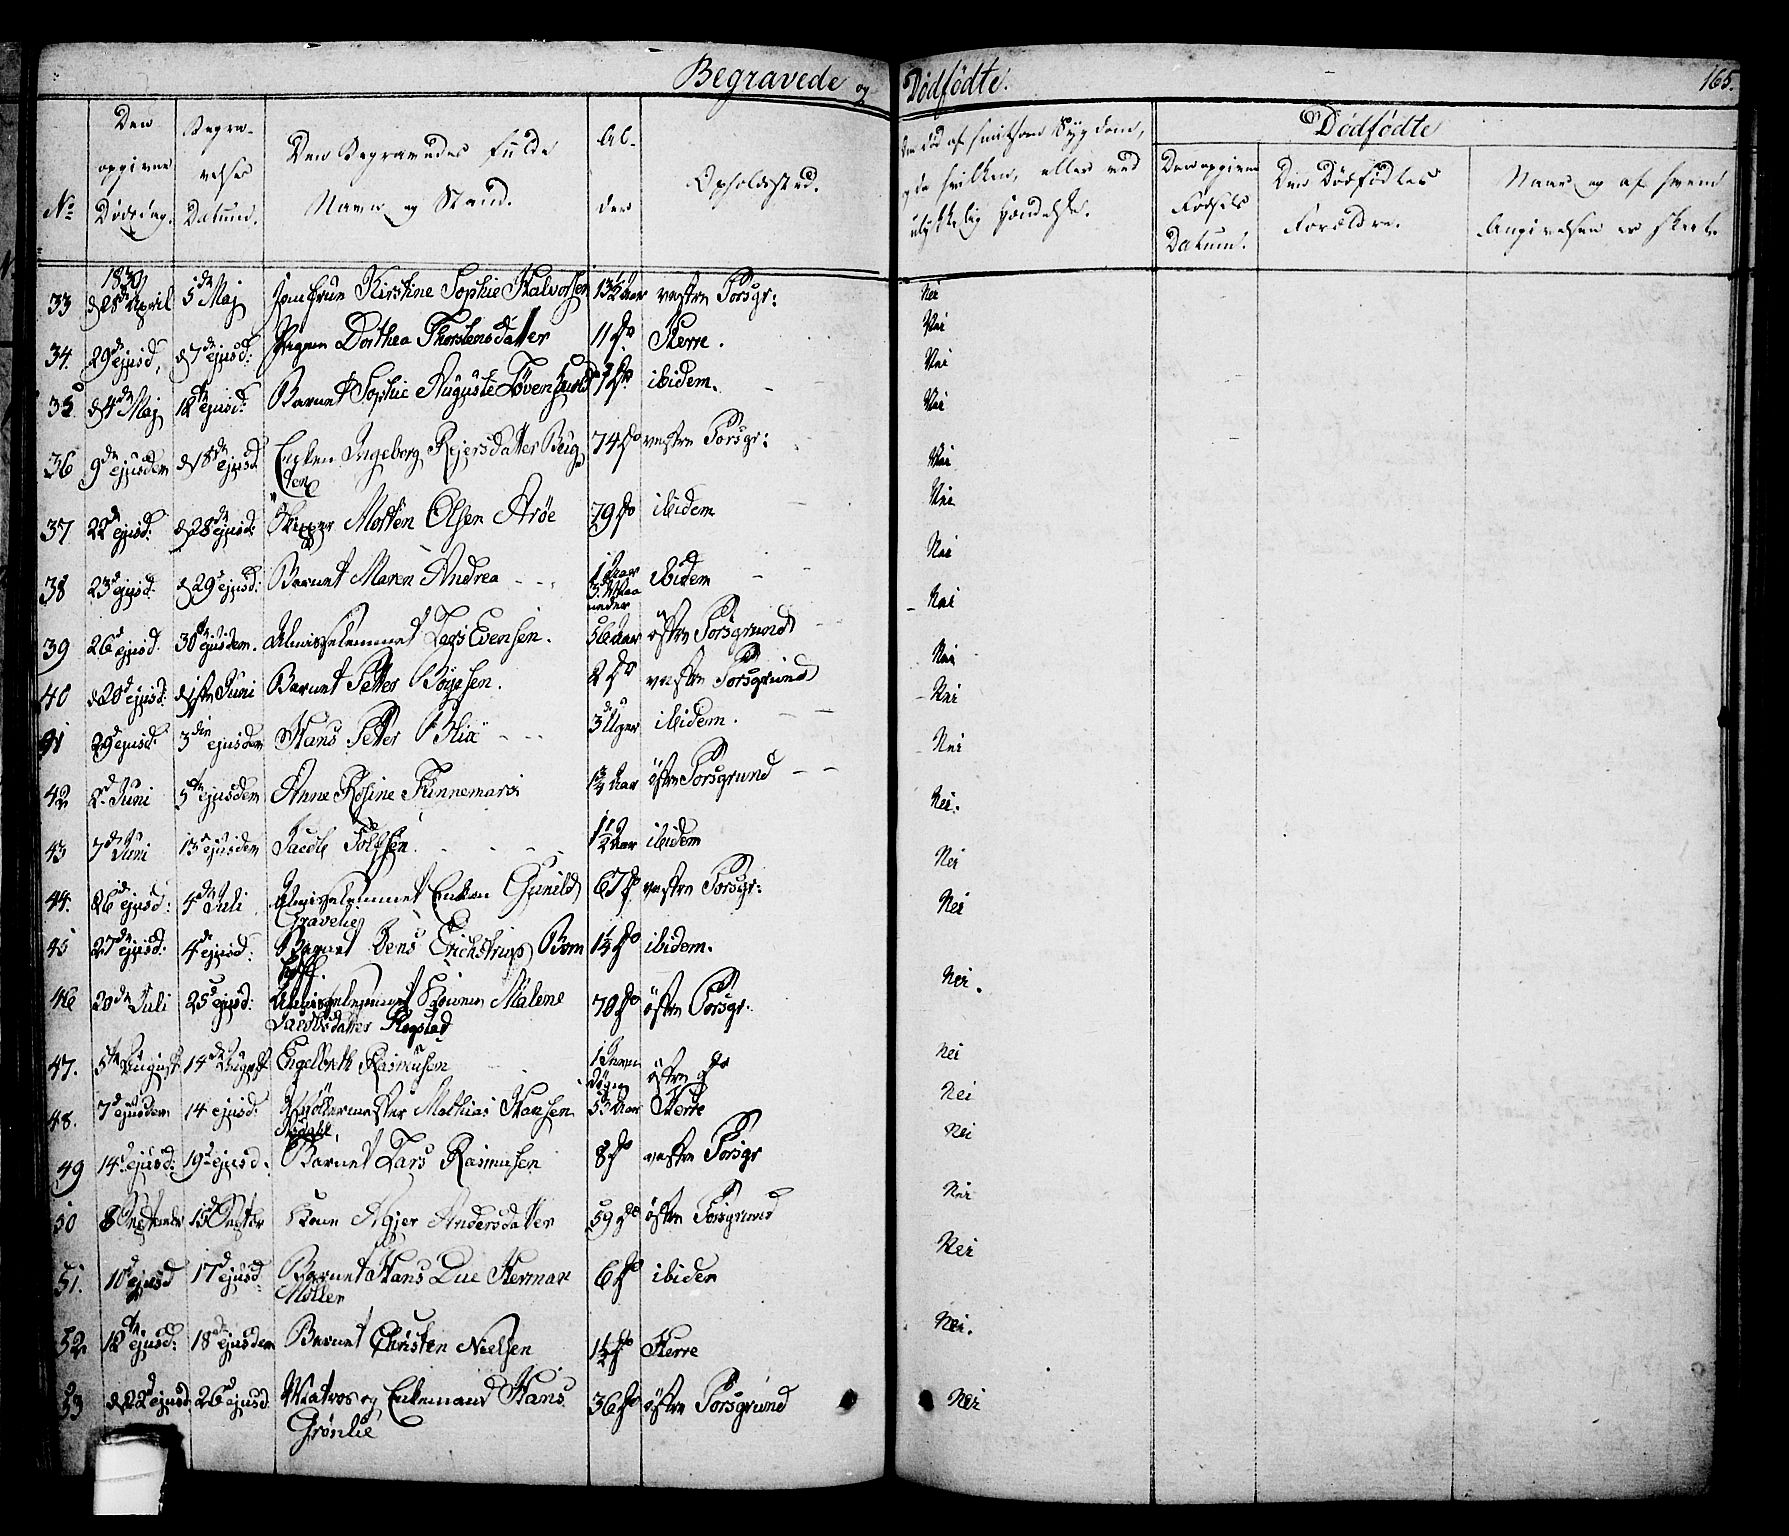 Begravede og Dødfødte.
165.
No
Den opgivne Dødsdag.
Begravelses Datum.
Den Begravedes fulde Navn og Stand.
Alder
Opholdssted.
Om død af smitsom Sygdom, og da hvilken, eller ved ulykkelig Hændelse.
Dødfødte
Den opgivne Fødsels Datum.
Den Dødfødtes Forældre.
Naar og af hvem Angivelsen er skeet.
1830
33 d 28de April 5de Maj Jomfrue Kirstine Sophie Halvorsen 13½ Aar vestre Porsgr: Nei
34. 29de ejusd, d 7de ejusd: Pigen Dorthea Thorstensdatter 11 do Herre. Nei
35 d 4de Maj 12te ejusd: Barnet Sophie Auguste Løvenskiold do ibidem. Nei
36 9de ejusdem d 18de ejusd Enken Ingeborg Rejersdatter Bugden 74 do vestre Porsgr: Nei
37 22de ejusd: d 28de ejusd: Skipper Morten Olsen Arøe 79 do ibidem Nei
38 23d ejusd. d 29d ejusd: Barnet Maren Andrea 1 Aar 3 Maaneder ibidem Nei
39 26d ejusd. 30te ejusdem. Almisselemmet Lars Evensen. 56 Aar østre Porsgrund Nei
40 d 28d ejusd: d 1ste Juni Barnet Petter Boyesen. 2 do vestre Porsgrund Nei
41 29d ejusd: 3die ejusdem Hans Petter Blix 3 Uger ibidem. Nei
42 2d Juni 5te ejusdem Anne Rosine Finnemarck ¾ Aar østre Porsgrund Nei
43 7de Juni 13d ejusdem Jacob Tolfsen. 1½ Aar ibidem Nei
44. 26d ejusd: 4de Juli Almisselemmet Enken Gunild Gravelie 67 do vestre Porsgr: Nei
45 27de ejusd: 4de ejusd: Barnet Jens Erichstrup Bomhoff. 1¼ do ibidem. Nei
46 20de Juli 25d ejusd: Almisselemmet Konen Malene Jacobsdatter Rogstad 70 do østre Porsgr. Nei.
47. 5te August 14de August Engelbreth Rasmusen 1 Døgn østre do Nei
48. 7d ejusdem 14 ejusd: Møllermester Mathias Hansen 53 Aar Herre Nei
49 14d ejusd: 19d ejusd. Barnet Lars Rasmusen 8 do vestre Porsgr Nei
50 8 September 15d Septbr Kone Asjer Andersdatter 59 do østre Porsgrund Nei
51. 10d ejusd 17d ejusd: Barnet Hans Due Herman Møller 6 do ibidem Nei
52 12te ejusd: 18de ejusdem Barnet Christen Nielsen 1½ do Herre Nei.
53 d 22d ejusd 26d ejusd Matros og Enkemand Hans Grønlie 36 do østre Porsgrund Nei